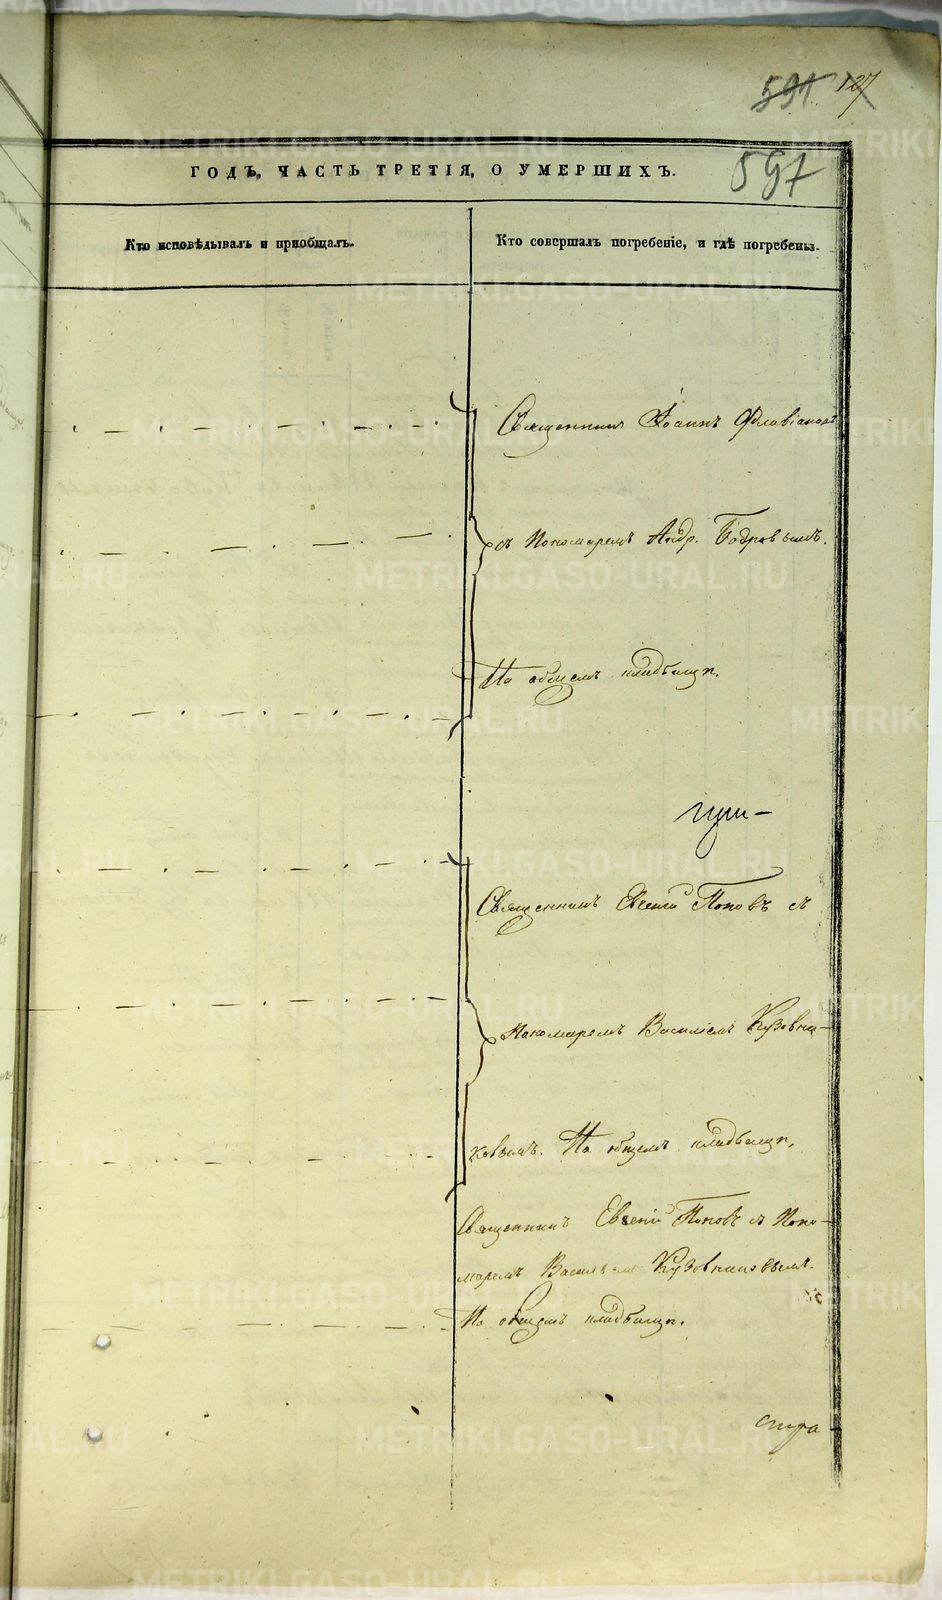 591 127
597
ГОДЪ, ЧАСТЬ ТРЕТІЯ, О УМЕРШИХЪ.
Кто исповѣдывалъ и пріобщалъ.
Кто совершалъ погребеніе, и гдѣ погребены.
Священникъ Іоаннъ Флавіановъ
съ Пономаремъ Андр. Бобровымъ.
На общемъ кладбищѣ.
Священникъ Евгеній Поповъ съ
Пономаремъ Василіемъ Кузовни-
ковымъ. На общемъ кладбищѣ.
Священникъ Евгеній Поповъ съ Поно-
маремъ Василіемъ Кузовниковымъ.
На общемъ кладбищѣ.
METRIKI.GASO-URAL.RU